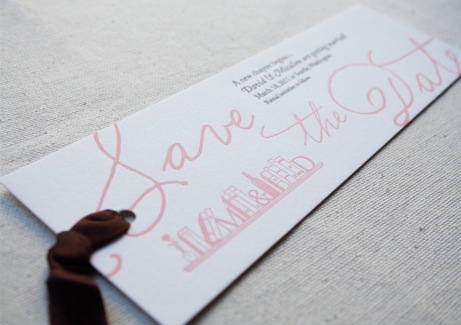 A new chapter begins...
David & are getting married!
March 19, in Seattle, Washington
Formal invitation to follow
Save the Date
M & D